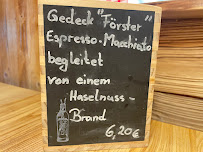 Gedeck "Förster"
Espresso-Macchiato
begleitet
von einem
Haselnuss-
Brand
6,20€